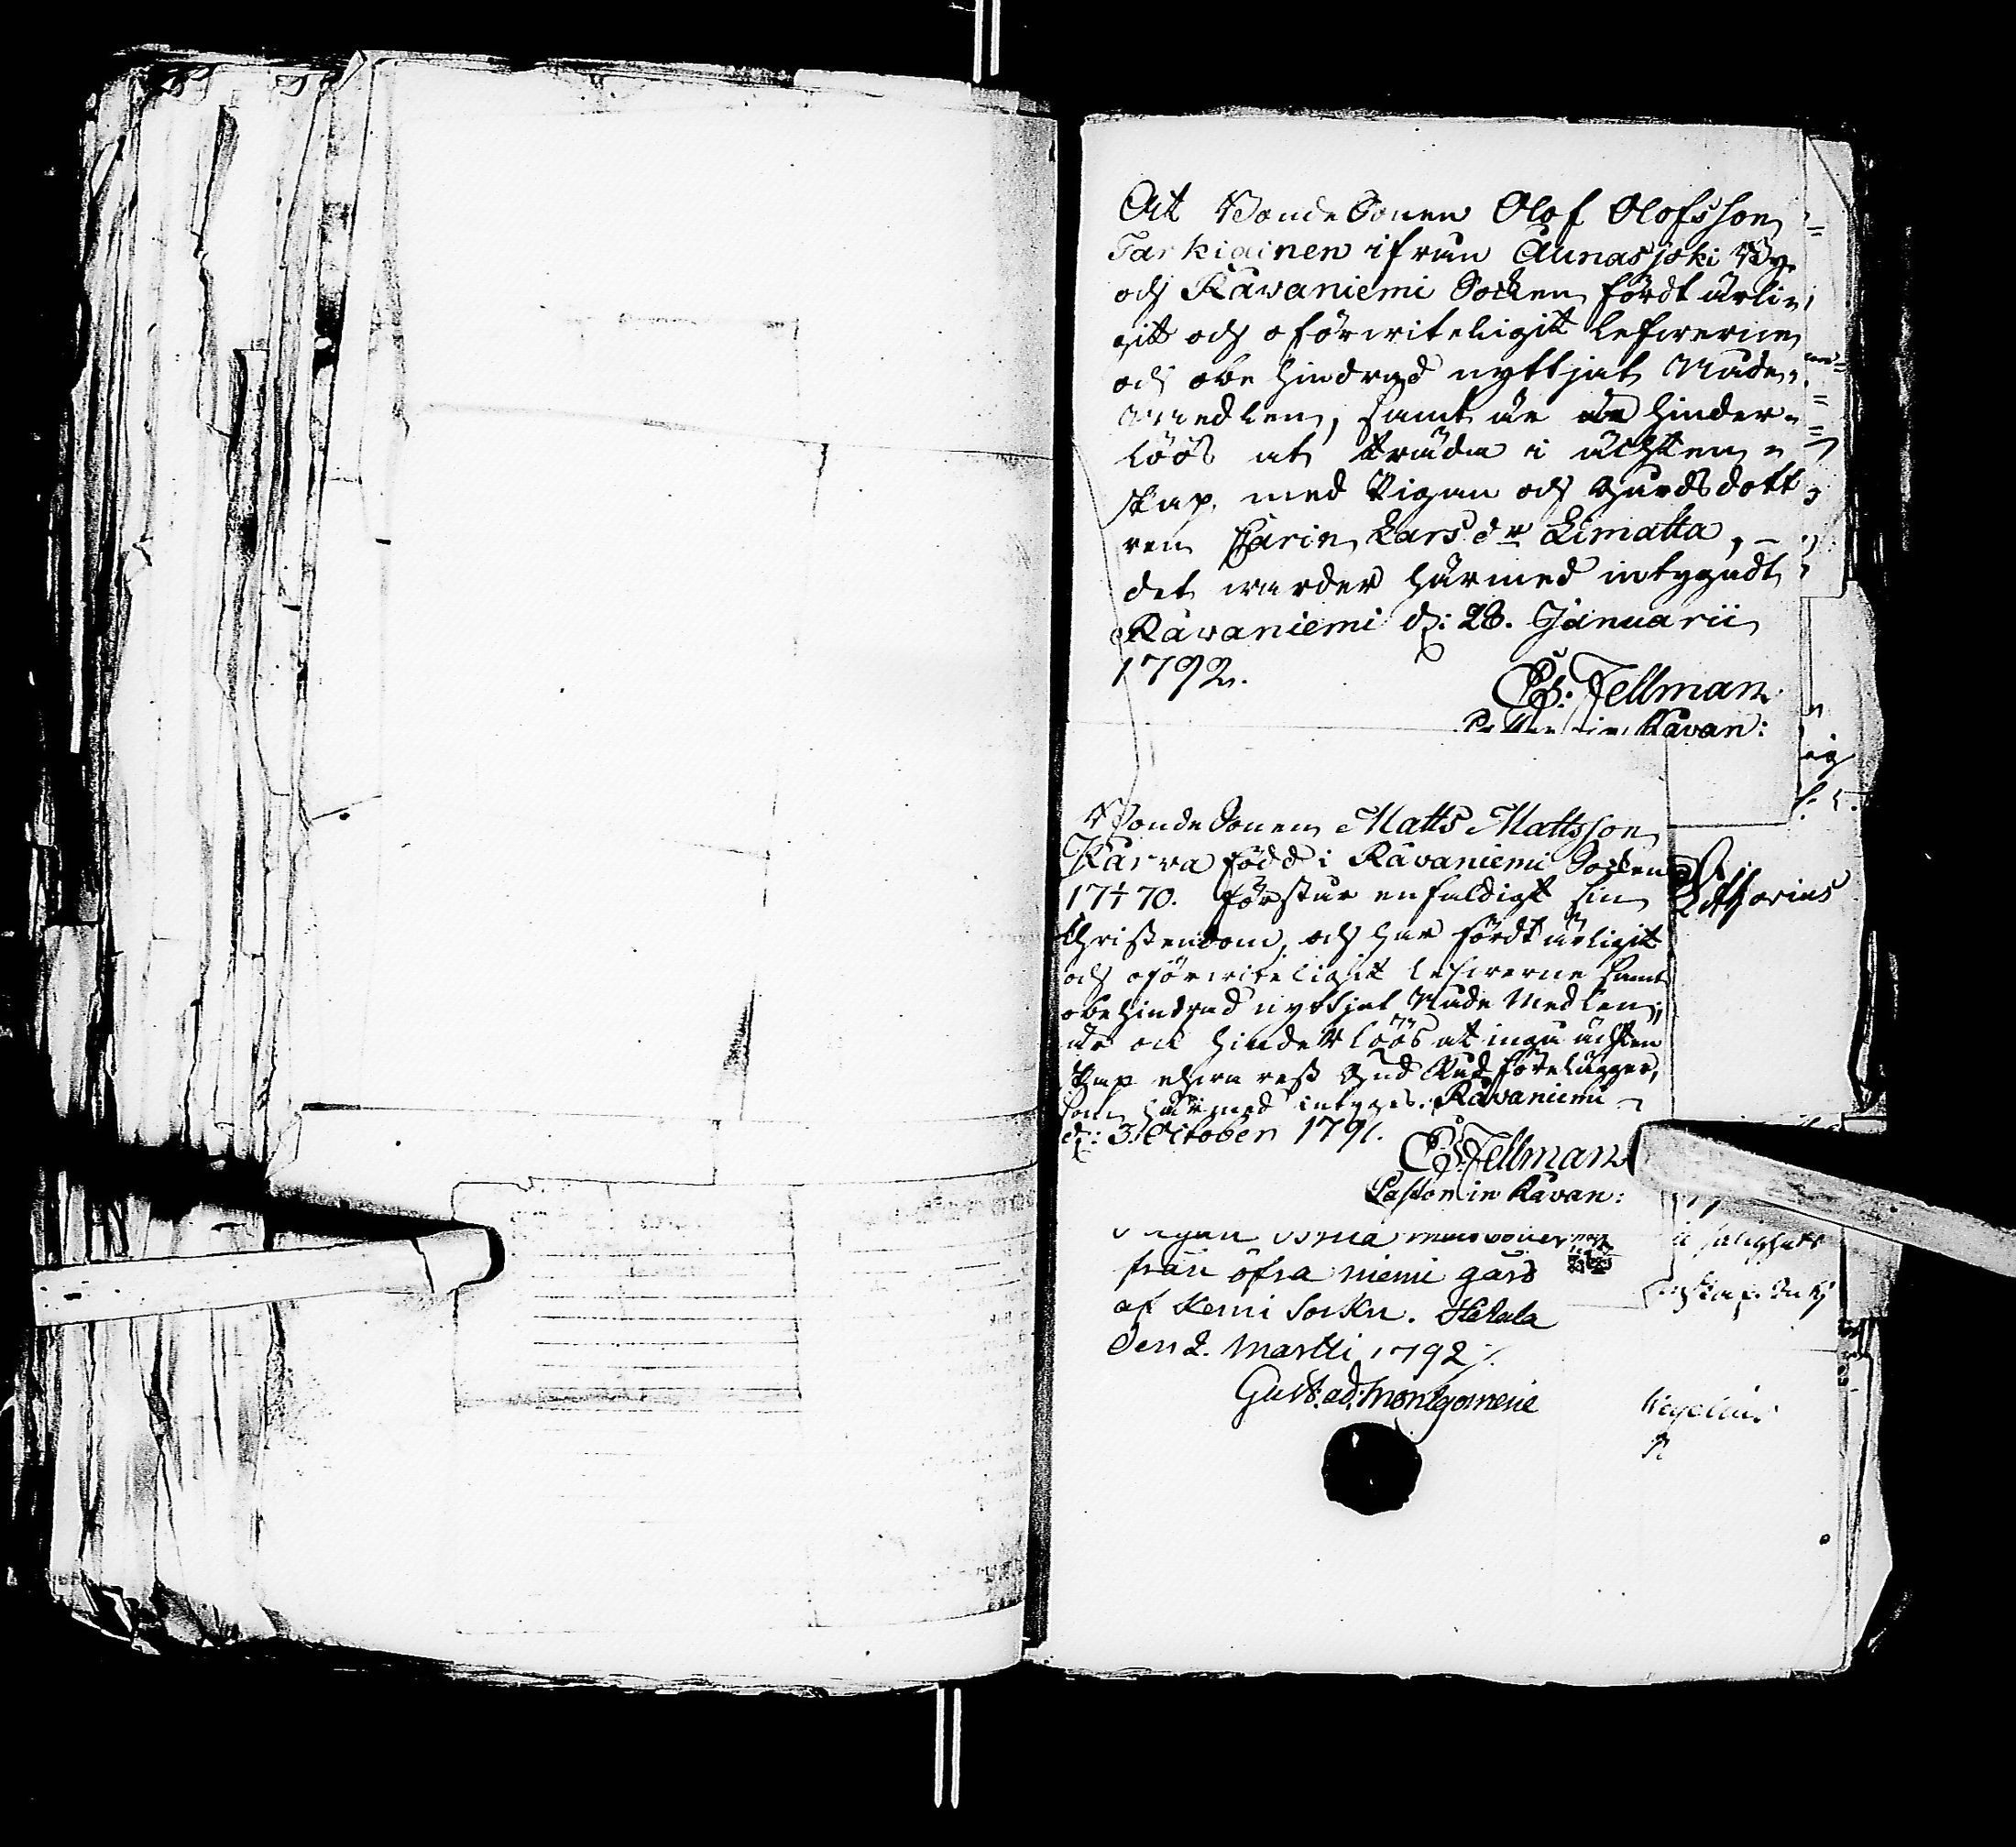 At BondeSonen Olof Olofsson
Tarkiainen ifrån Aunasjoki By
och Råvaniemi Socken fördt ärli=
git och oförviteligit lefwerne
och obehindrad nyttjat Nåde=
medlen, samt är hinder=
löös at träda i ächten=
skap, med Pigan och Gårdsdott
ren Carin Lars dr Limatta,
det warder härmed intygadt
Råvaniemi d: 28. Januarii
1792.
Es: Fellman
Råvan:
BondeSonen Matts Mattsson
Karva född i Råvaniemi Socken
1770. förstår enfaldigt sin
Christendom, och har fördt ärligit
och oförviteligit lefwerne samt
obehindrad nyttjat Nåde Medlen;
är ock hinderlöös at ingå ächten
skap ehwarest Gud Råd förelägger,
som härmed intyges. Råvaniemi
d: 3 October 1791.
Es: Fellman
Pastor in Råvan:
från öfra niemi gård
af Kemi Sockn.
Den 2. Martii 1792
Gust. ad. Montgomerie